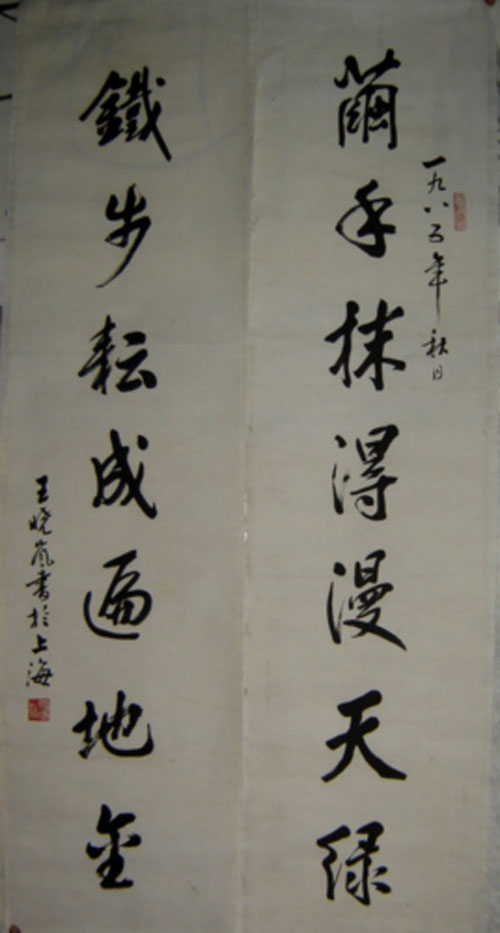 一九八五年秋日
茧手抹得漫天绿
鐵步耘成遍地金
王晓岚书於上海